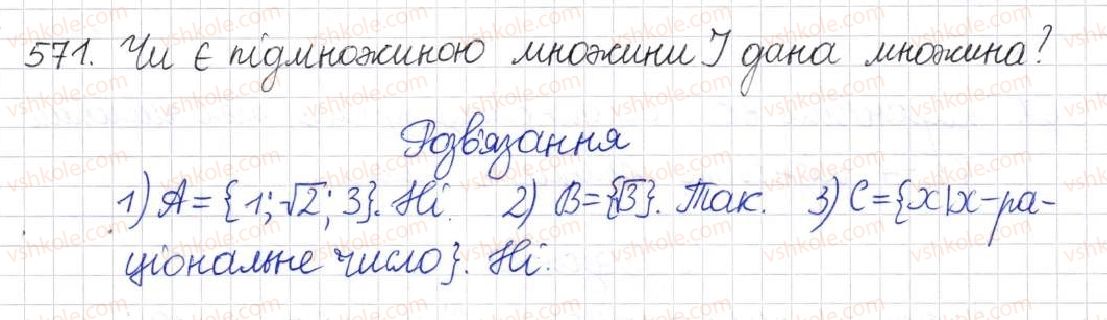 571. Чи є підмножиною множини I дана множина?
Розв'язання
1) A = {1; √2; 3}. Ні. 2) B = {√3}. Так. 3) C = {x|x - ра-
ціональне число}. Ні.